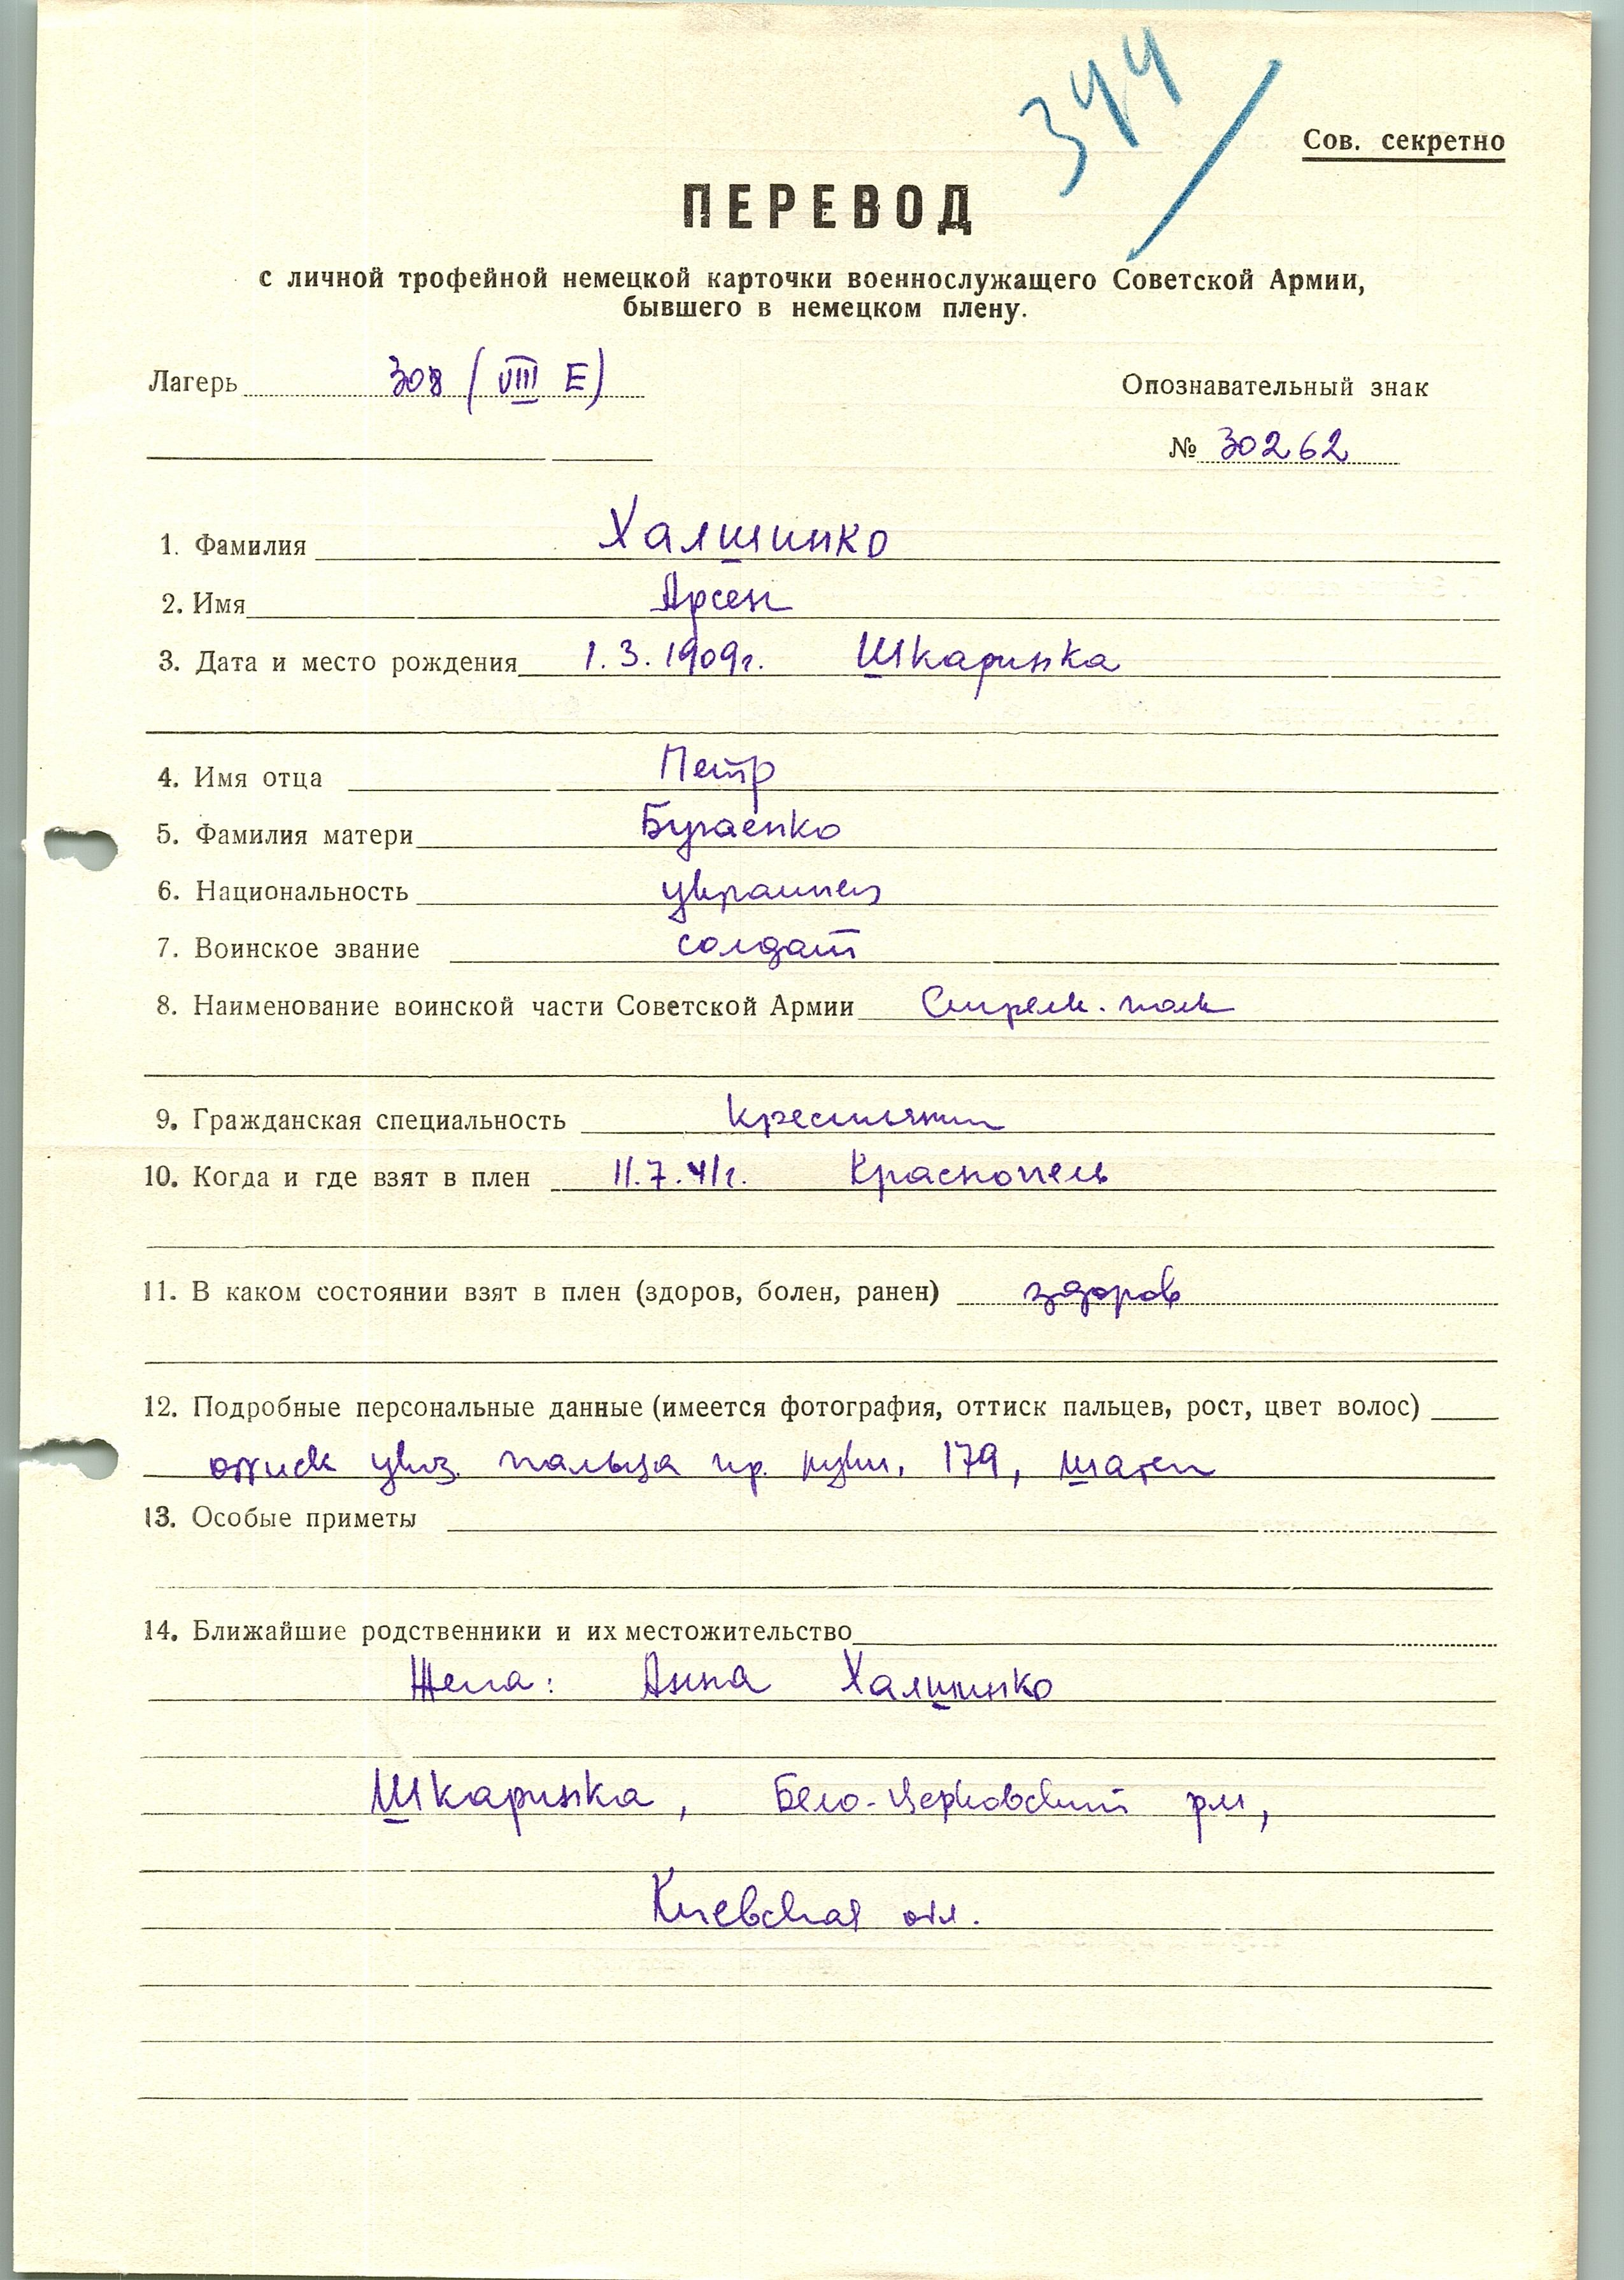 344/
Сов. секретно
ПЕРЕВОД
с личной трофейной немецкой карточки военнослужащего Советской Армии,
бывшего в немецком плену.
Лагерь 308 (VIII E)
Опознавательный знак
№ 30262
1. Фамилия Халшинко
2. Имя Арсен
3. Дата и место рождения 1.3.1909г. Шкаринка
4. Имя отца Петр
5. Фамилия матери Бугаенко
6. Национальность украинец
7. Воинское звание солдат
8. Наименование воинской части Советской Армии Стрелк. полк
9. Гражданская специальность крестьянин
10. Когда и где взят в плен 11.7.41г. Краснопель
11. В каком состоянии взят в плен (здоров, болен, ранен) здоров
12. Подробные персональные данные (имеется фотография, оттиск пальцев, рост, цвет волос)
оттиск указ. пальца пр. руки, 179, шатен
13. Особые приметы
14. Ближайшие родственники и их местожительство
Жена: Анна Халшинко
Шкаринка, Бело-Церковский рн,
Киевская обл.